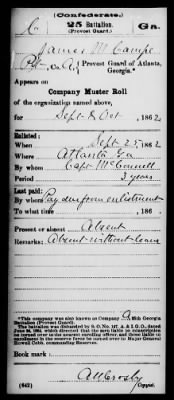 (Confederate.)
C 25 Battalion. Ga.
(Provost Guard.)
James M Camp
Pvt, Co. A, { Provost Guard of Atlanta, Georgia.*
Appears on
Company Muster Roll
of the organization named above,
for Sept & Oct, 1862.
Enlisted:
When Sept 25, 1862.
Where Atlanta Ga
By whom Capt McConnell
Period 3 years
Last paid:
By whom Pay due from enlistment
To what time , 186 .
Present or absent Absent
Remarks: Absent without leave
*This company was also known as Company A 25th Georgia
Battalion (Provost Guard).
The battalion was disbanded by S. O. No. 147, A. & I. G. O., dated
June 24, 1864, which directed that the men liable to conscription be
turned over to the nearest enrolling officer, and those liable to
enrollment in the reserve force be turned over to Major General
Howell Cobb, commanding Reserves.
Book mark:
(642) Crosby
Copyist.